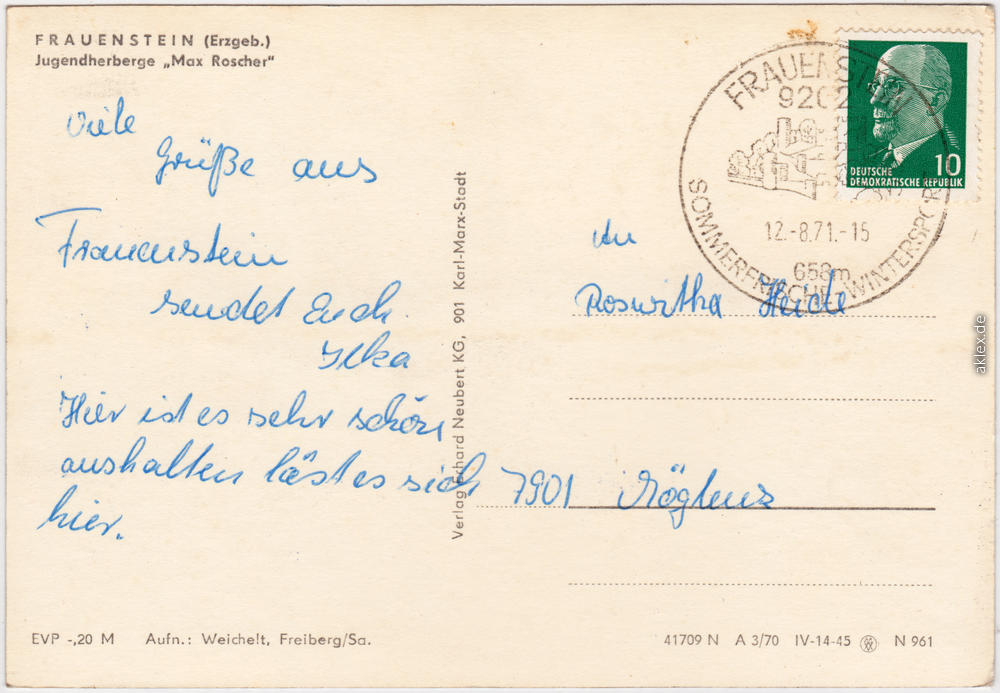 FRAUENSTEIN (Erzgeb.)
Jugendherberge „Max Roscher“
Viele
Grüße aus
Frauenstein
sendet Euch
Ilka
Hier ist es sehr schön
aushalten läst es sich
hier.
Verlag Erhard Neubert KG, 901 Karl-Marx-Stadt
FRAUENSTEIN
9202
12.-8.71.-15
658m
SOMMERFRISCHE WINTERSPORT
10
DEUTSCHE
DEMOKRATISCHE REPUBLIK
An
Roswitha
7901
EVP -,20 M Aufn.: Weichelt, Freiberg/Sa.
41709 N A 3/70 IV-14-45 N 961
aklex.de